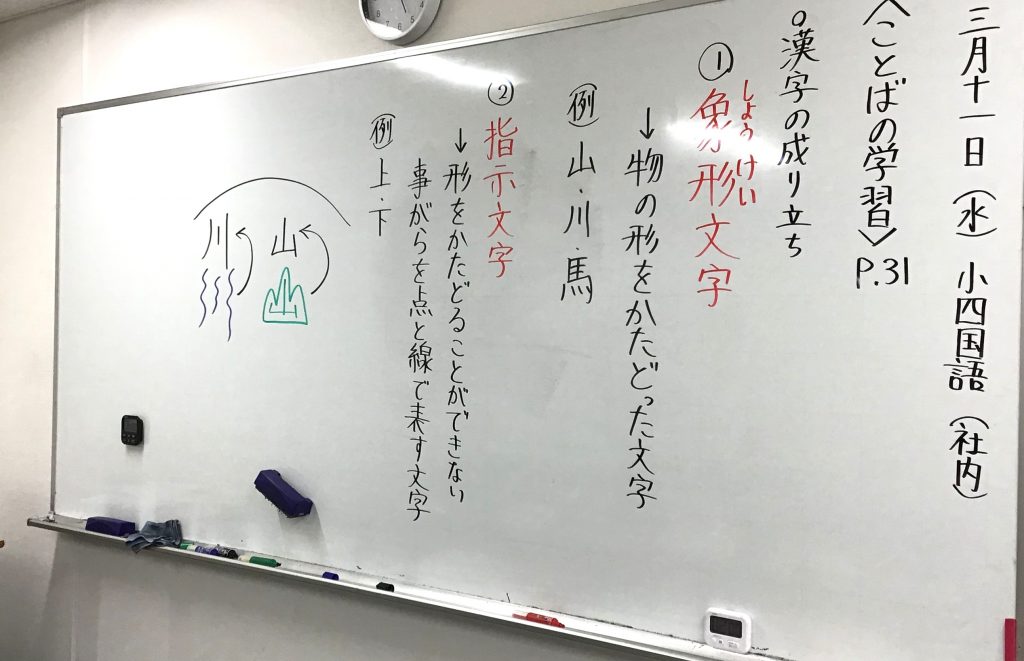 三月十一日（水）　小四国語（社内）
〈ことばの学習〉P.31
○漢字の成り立ち
しょうけい
①象形文字
↓物の形をかたどった文字
例　山・川・馬
②指示文字
↓形をかたどることができない
事がらを点と線で表す文字
例　上・下
山
川